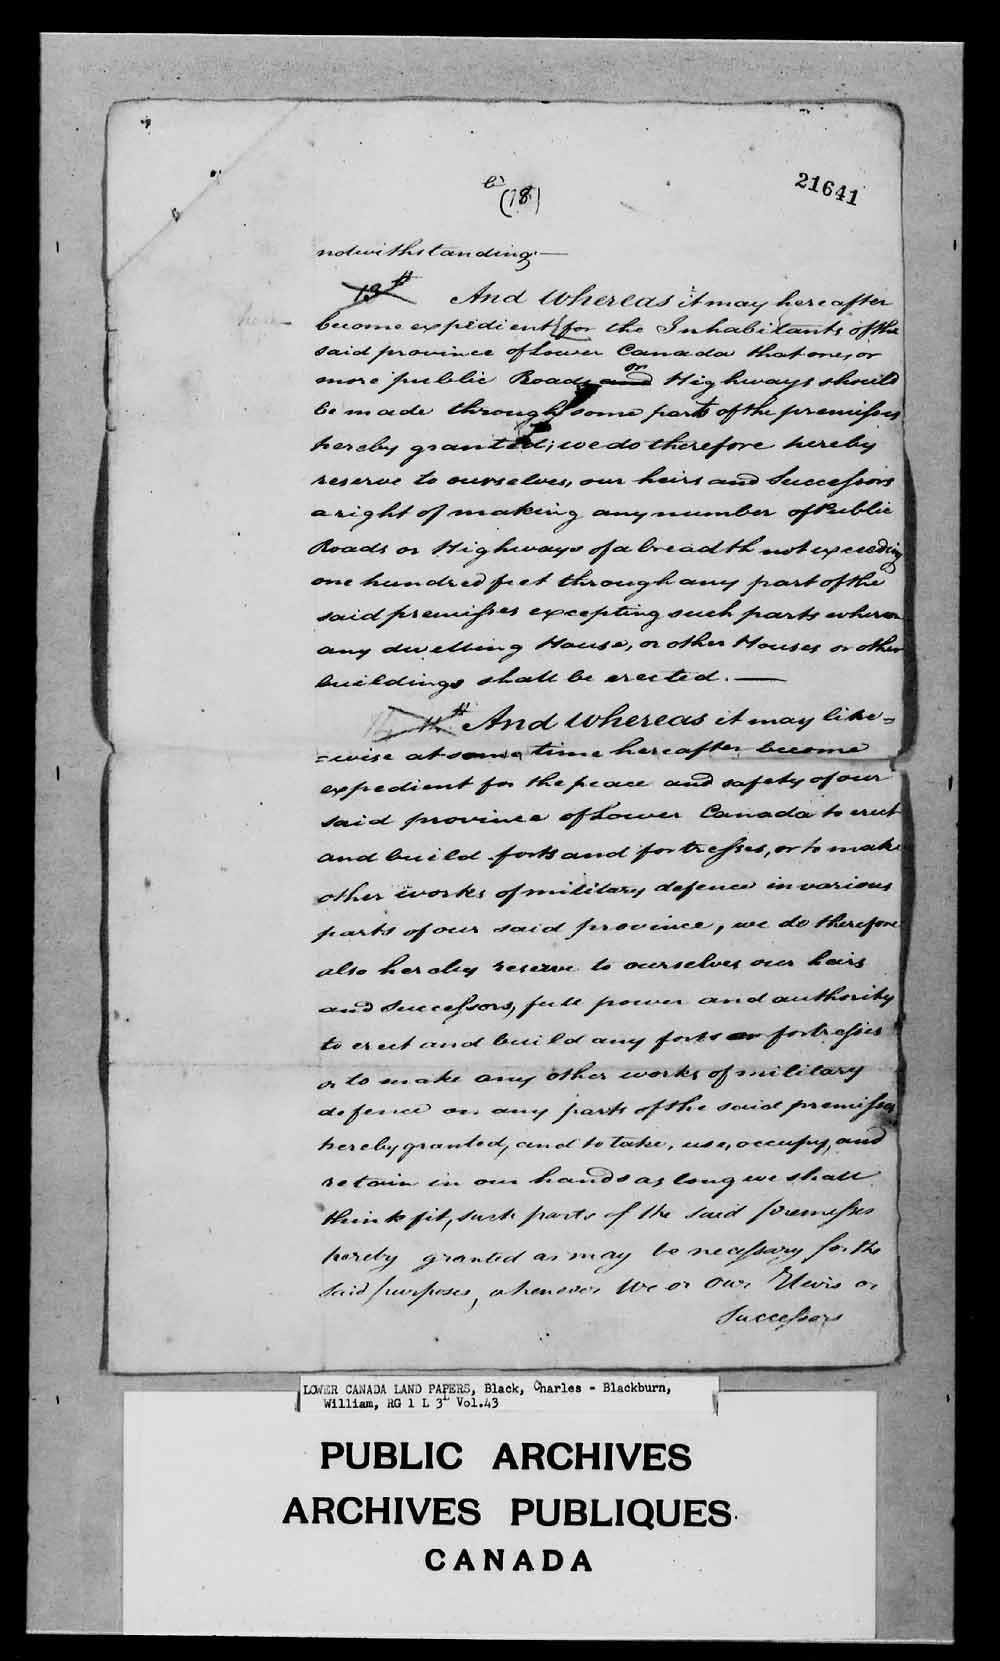 21641
(18)
notwithstanding —
13th And Whereas it may hereafter
become expedient for the Inhabitants of the
said province of Lower Canada that one, or
more public Roads and or Highways should
be made through some parts of the premisses
hereby granted; we do therefore hereby
reserve to ourselves, our heirs and Successors
a right of making any number of Public
Roads or Highways of a breadth not exceeding
one hundred feet through any part of the
said premisses excepting such parts whereon
any dwelling House, or other Houses or other
buildings shall be erected. —
And Whereas it may like=
=wise at some time hereafter become
expedient for the peace and safety of our
said province of Lower Canada to erect
and build forts and fortresses, or to make
other works of military defence in various
parts of our said province, we do therefore
also hereby reserve to ourselves our heirs
and Successors, full power and authority
to erect and build any forts or fortresses
or to make any other works of military
defence on any parts of the said premisses
hereby granted, and to take, use, occupy, and
retain in our hands as long we shall
think fit, such parts of the said premisses
hereby granted as may be necessary for the
said purposes, whenever We or Our Heirs or
Successors
LOWER CANADA LAND PAPERS, Black, Charles - Blackburn,
William, RG 1 L 3L Vol.43
PUBLIC ARCHIVES
ARCHIVES PUBLIQUES
CANADA